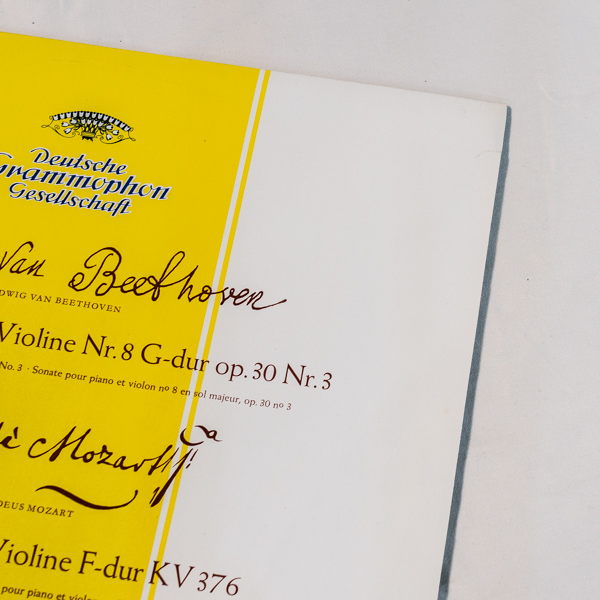 Deutsche
Grammophon
Gesellschaft
van Beethoven
DWIG VAN BEETHOVEN
Violine Nr. 8 G-dur op. 30 Nr. 3
No. 3 · Sonate pour piano et violon nº 8 en sol majeur, op. 30 nº 3
Mozart
DEUS MOZART
Violine F-dur KV 376
pour piano et